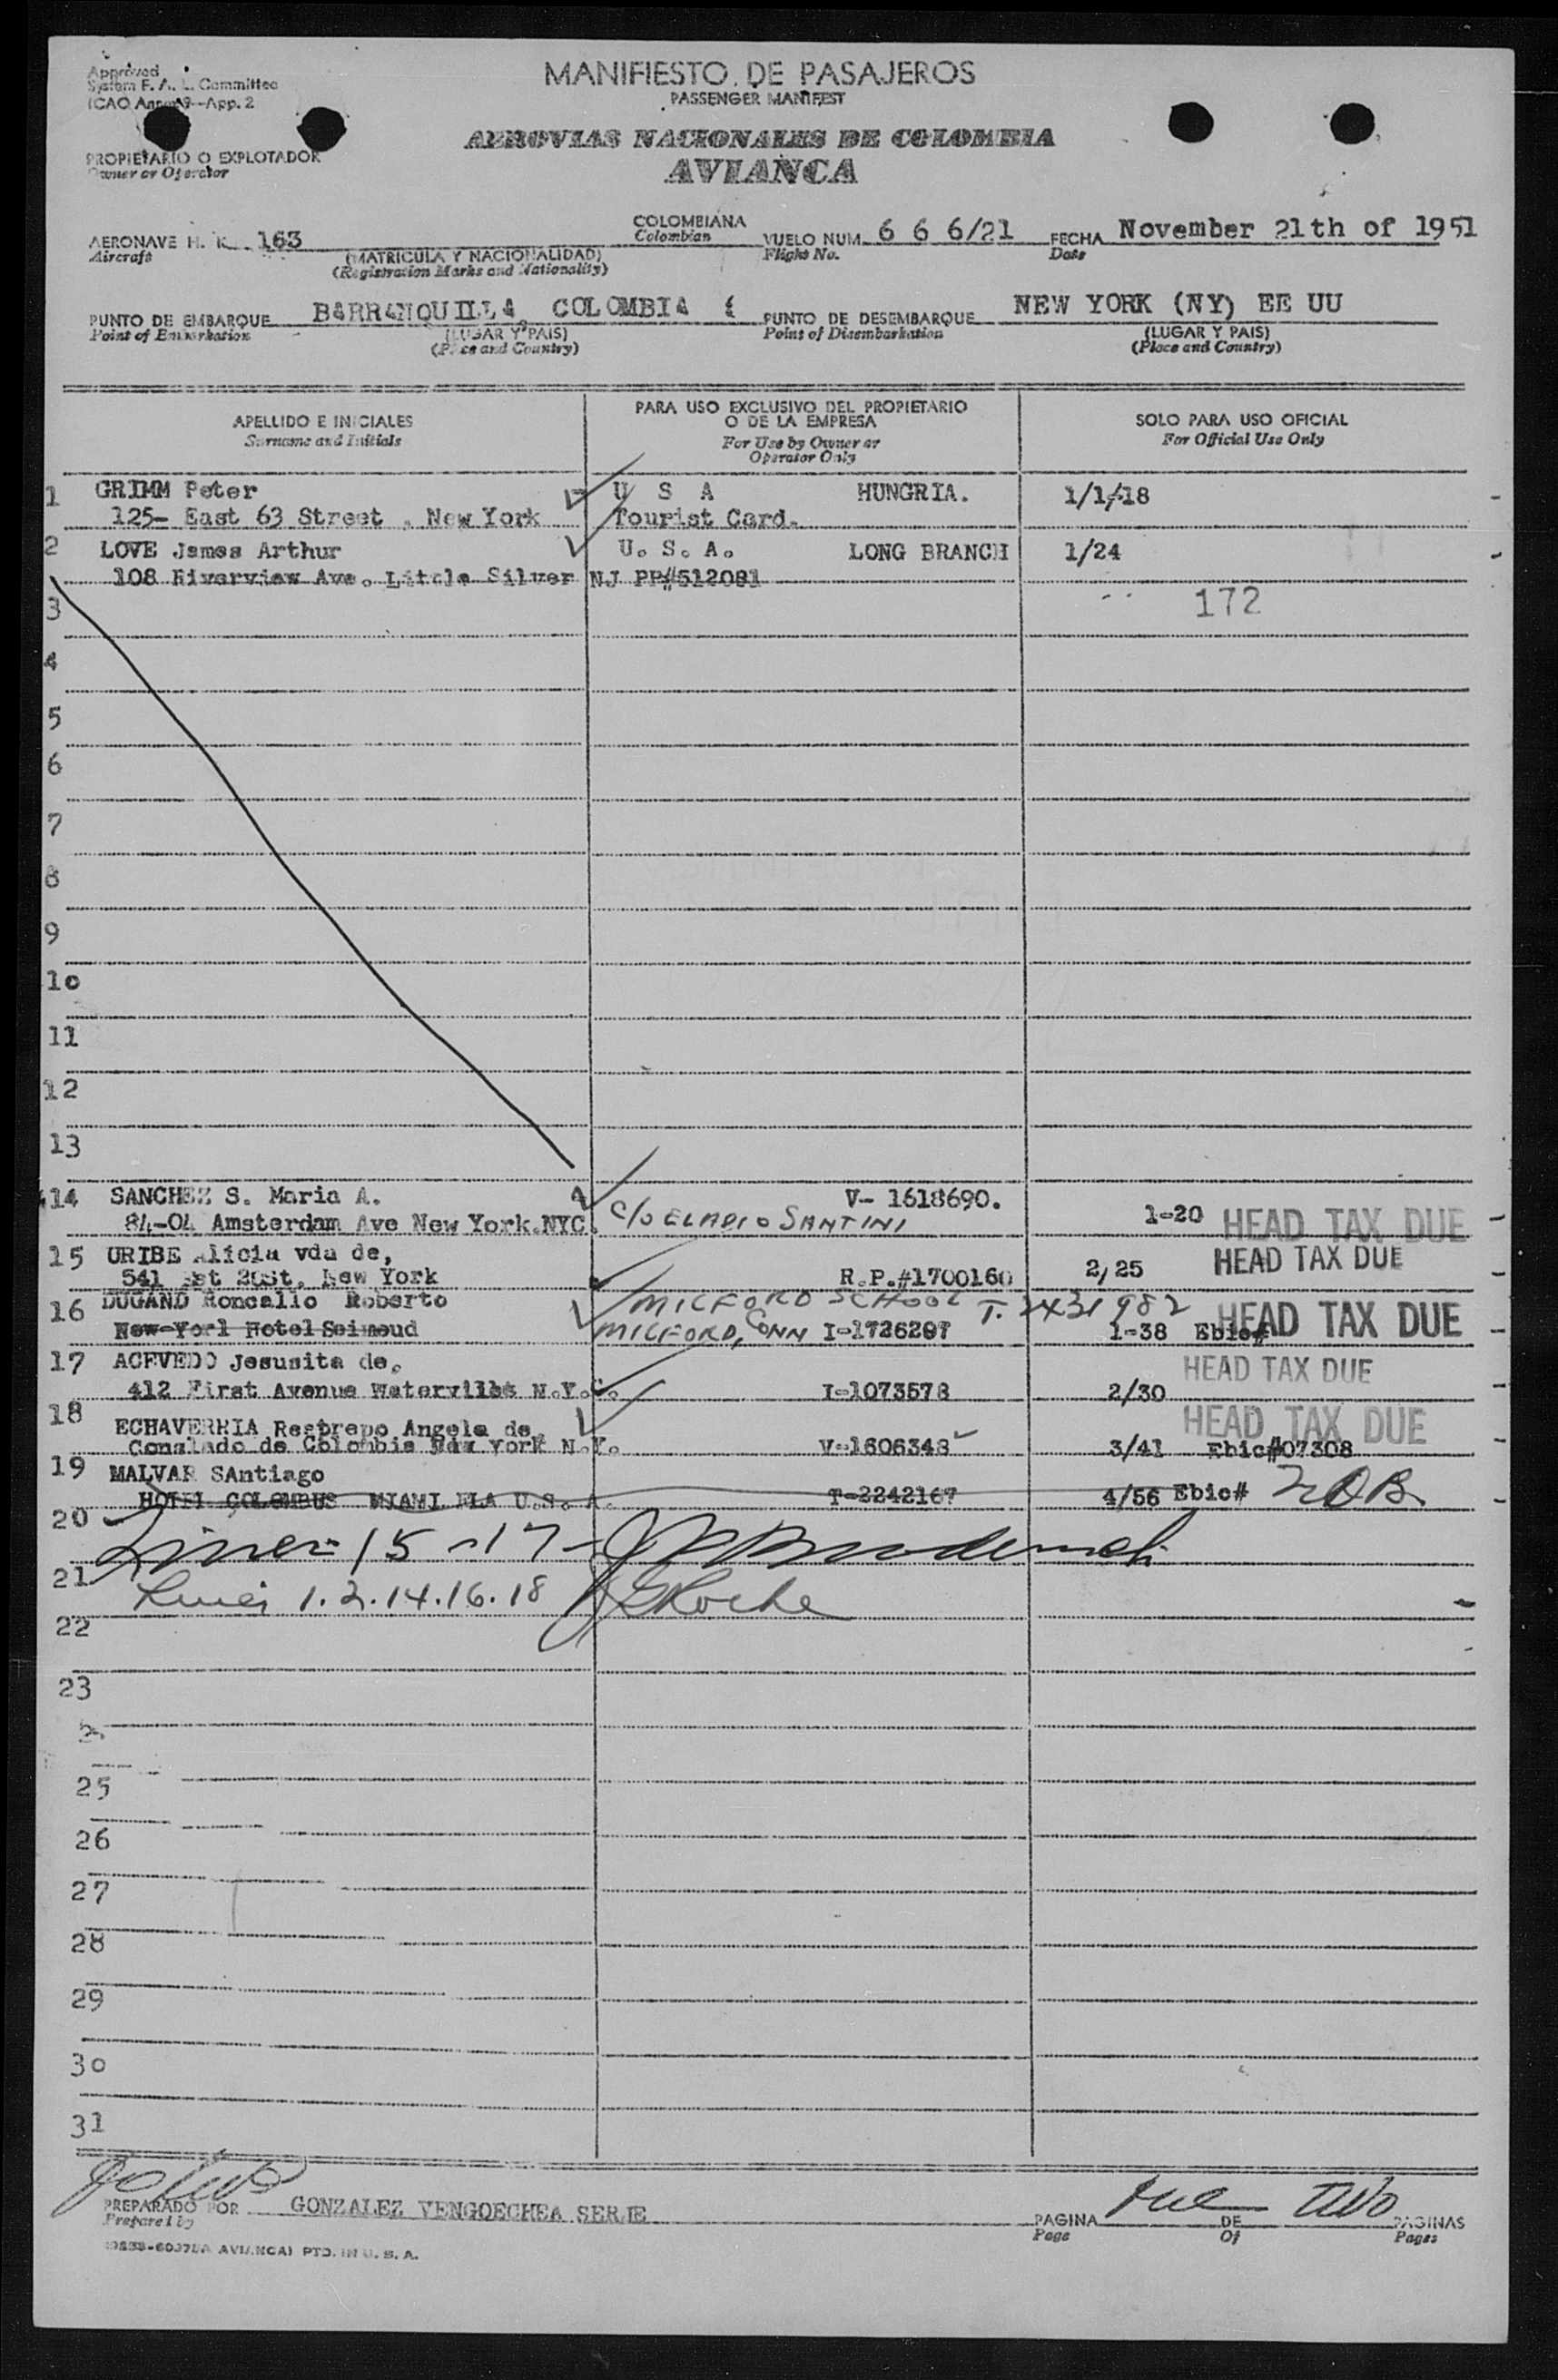 Approved
System F. A. L. Committee
ICAO Annex 9--App. 2
MANIFIESTO DE PASAJEROS
PASSENGER MANIFEST
AEROVIAS NACIONALES DE COLOMBIA
AVIANCA
PROPIETARIO O EXPLOTADOR
Owner or Operator
AERONAVE H. K. 163
Aircraft
(MATRICULA Y NACIONALIDAD)
(Registration Marks and Nationality)
COLOMBIANA
Colombian
VUELO NUM. 6 6 6/21
Flight No.
FECHA November 21th of 1951
Date
PUNTO DE EMBARQUE BARRANQUILLA, COLOMBIA
Point of Embarkation
(LUGAR Y PAIS)
(Place and Country)
PUNTO DE DESEMBARQUE NEW YORK (NY) EE UU
Point of Disembarkation
(LUGAR Y PAIS)
(Place and Country)
APELLIDO E INICIALES
Surname and Initials
PARA USO EXCLUSIVO DEL PROPIETARIO
O DE LA EMPRESA
For Use by Owner or
Operator Only
SOLO PARA USO OFICIAL
For Official Use Only
1 GRIMM Peter U S A HUNGRIA. 1/1/18
125- East 63 Street , New York Tourist Card.
2 LOVE James Arthur U. S. A. LONG BRANCH 1/24
108 Riverview Ave. Little Silver NJ PP#512081
3 172
4
5
6
7
8
9
10
11
12
13
14 SANCHEZ S. Maria A. V- 1618690.
84-04 Amsterdam Ave New York.NYC. c/o ELADIO SANTINI 1-20 HEAD TAX DUE
15 URIBE Alicia vda de, HEAD TAX DUE
541 St, New York R.P.#1700160 2/25
16 DUGAND Roncallo Roberto MILFORD SCHOOL T. 2431982 HEAD TAX DUE
New-Yorl Hotel Seimoud MILFORD, CONN I-1726287 1-38 Ebic#
17 ACEVEDO Jesusita de. HEAD TAX DUE
412 First Avenue N.Y.C. I-1073578 2/30
18 ECHAVERRIA Restrepo Angela de HEAD TAX DUE
Conslado de Colombia New York N.Y. V-1606348 3/41 Ebic#07308
19 MALVAR SAntiago
HOTEL COLOMBUS MIAMI FLA U.S. A. T-2242167 4/56 Ebic# NOB
20
Lines 15-17-
21
Lines 1.2.14.16.18 Roche
22
23
25
26
27
28
29
30
31
PREPARADO POR GONZALEZ VENGOECHEA SERJE
Prepared by
PAGINA DE two PAGINAS
Page Of Pages
AVIANCA) PTD. IN U. S. A.